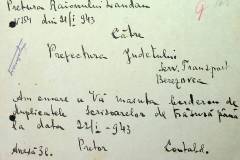 Pretura Raionului Landau
N 154 din 22/I 943
Către
Prefectura Județului
Serv. Transport
Berezovca
Am onoare a Vă înainta borderou de
duplicatele scrisoarelor de trăsură până
la data 22/I - 943
Anexă 31. Pretor Contabil.